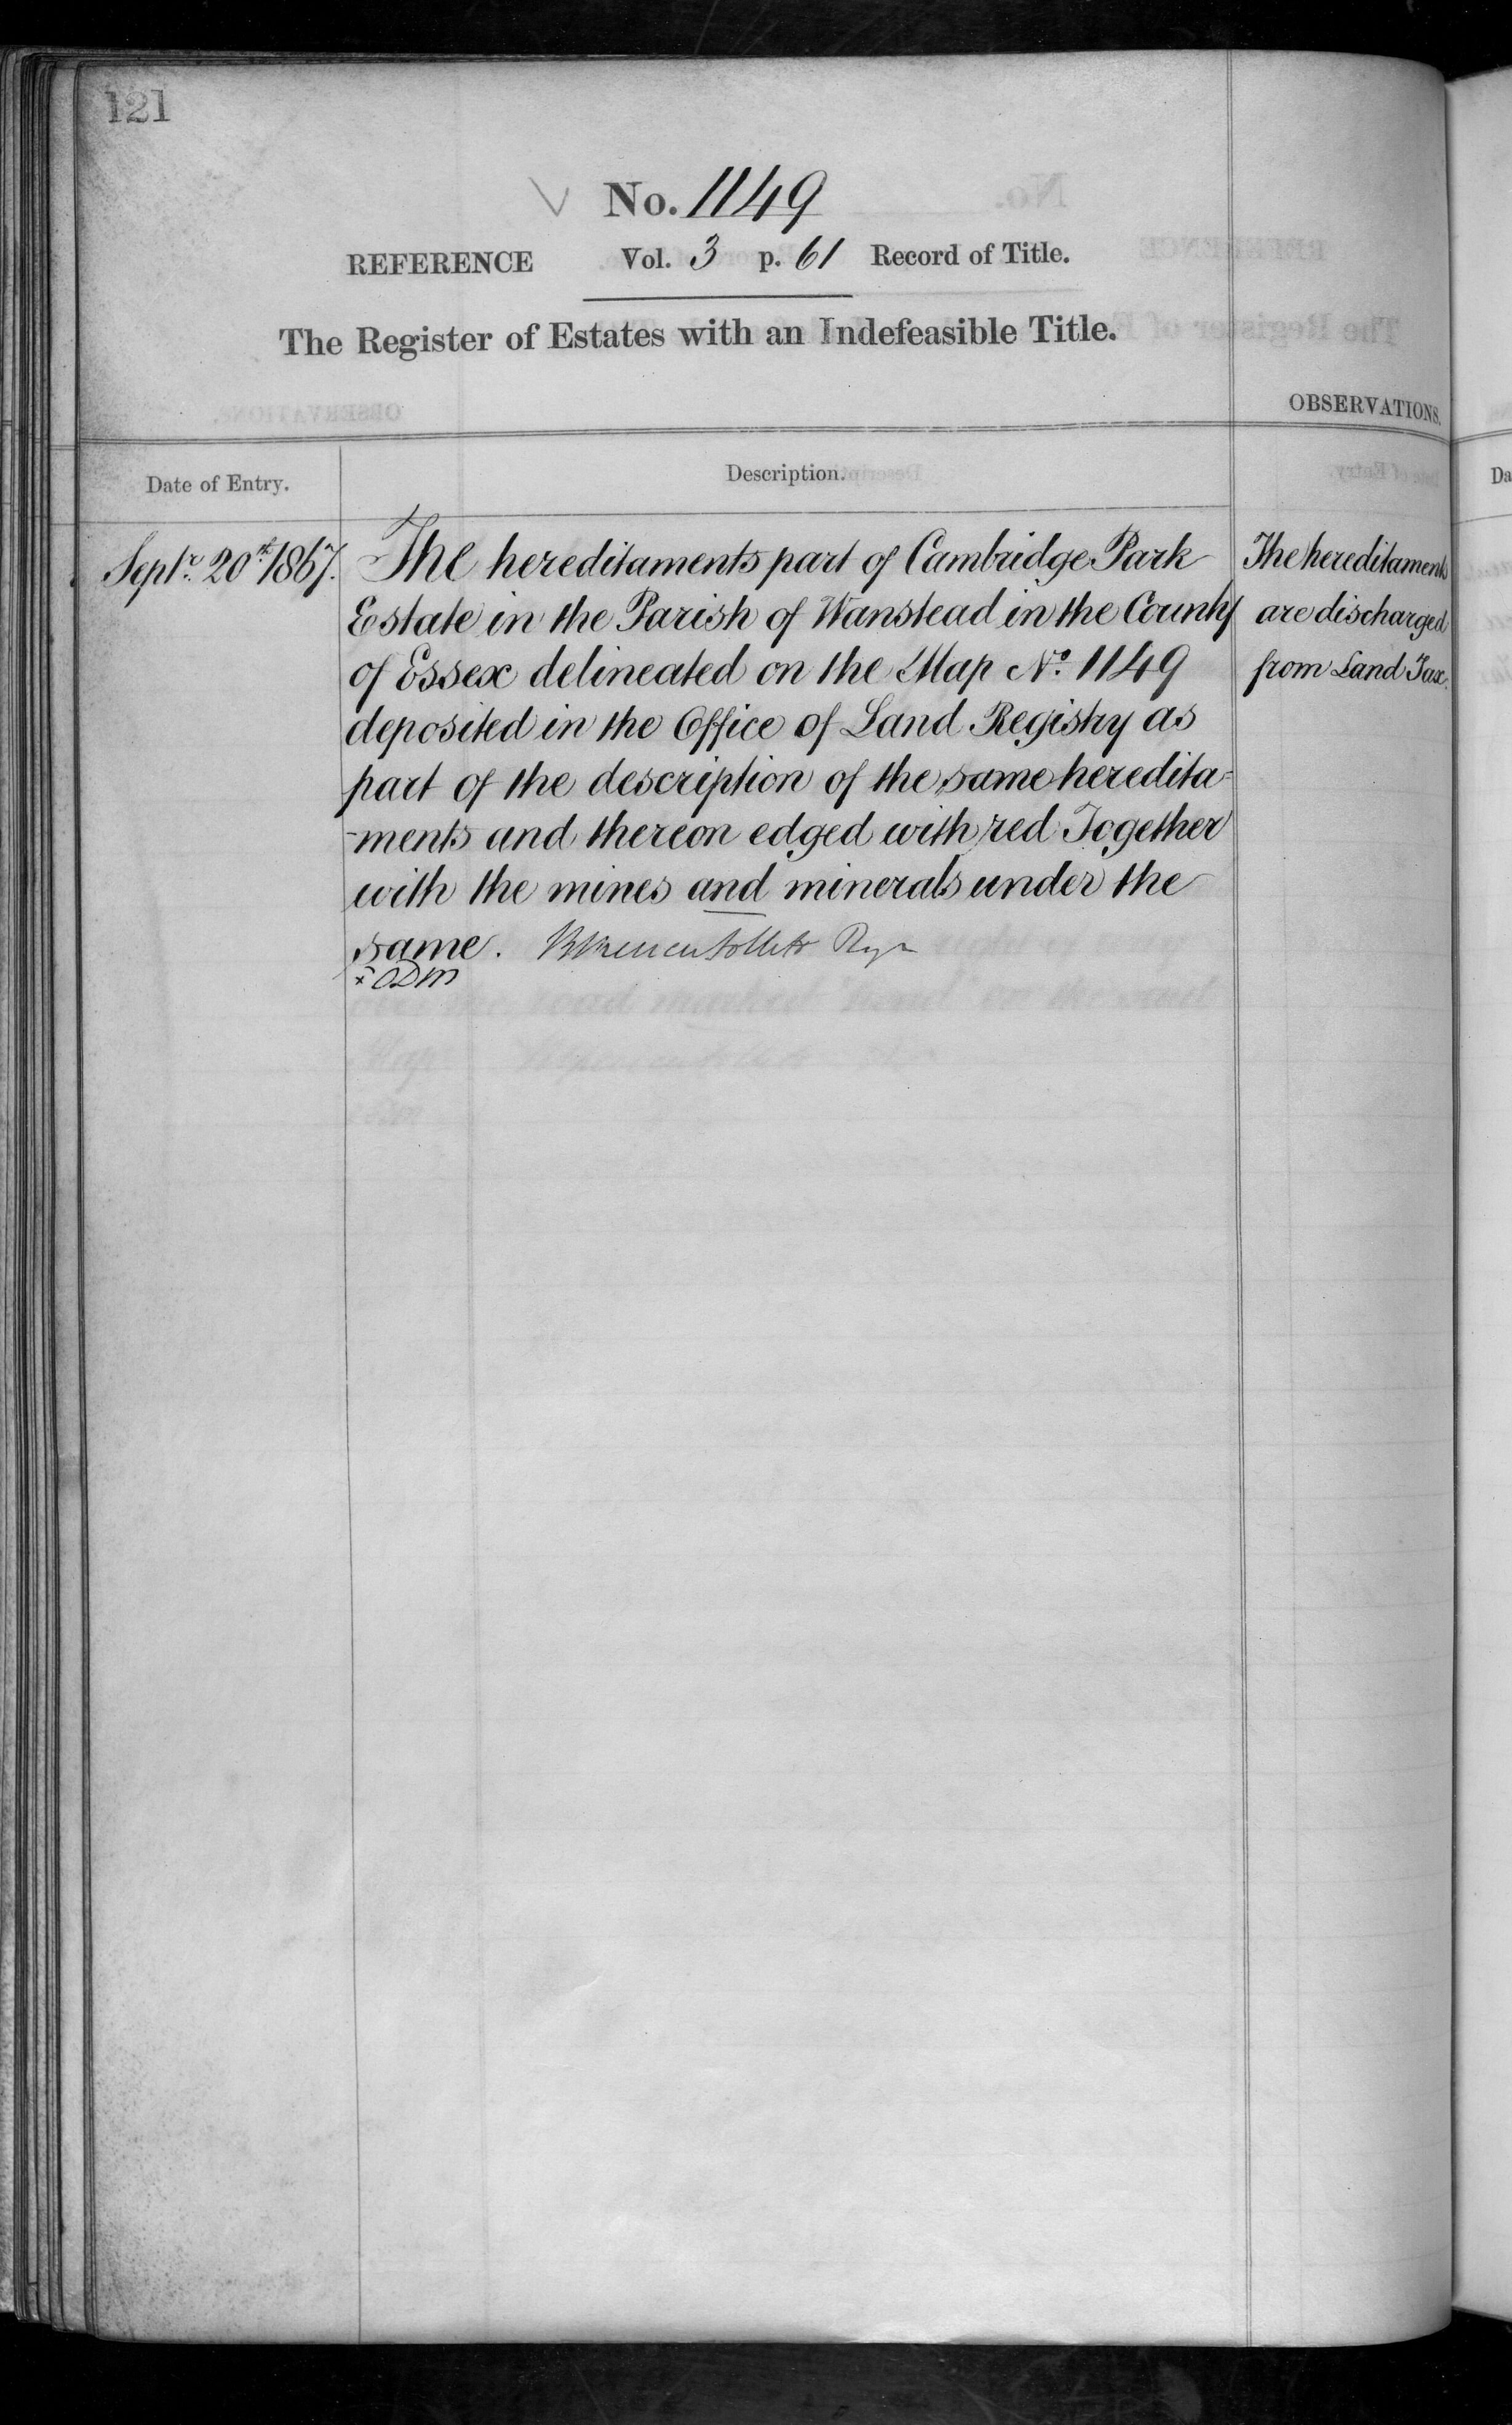 121
No. 1149
REFERENCE Vol. 3 p. 61 Record of Title.
The Register of Estates with an Indefeasible Title.
OBSERVATIONS.
Date of Entry. Description.
Septr. 20th 1867. The hereditaments part of Cambridge Park
Estate in the Parish of Wanstead in the County
of Essex delineated on the Map No. 1149
deposited in the Office of Land Registry as
part of the description of the same heredita-
-ments and thereon edged with red Together
with the mines and minerals under the
same.
The hereditaments
are discharged
from Land Tax.
Da